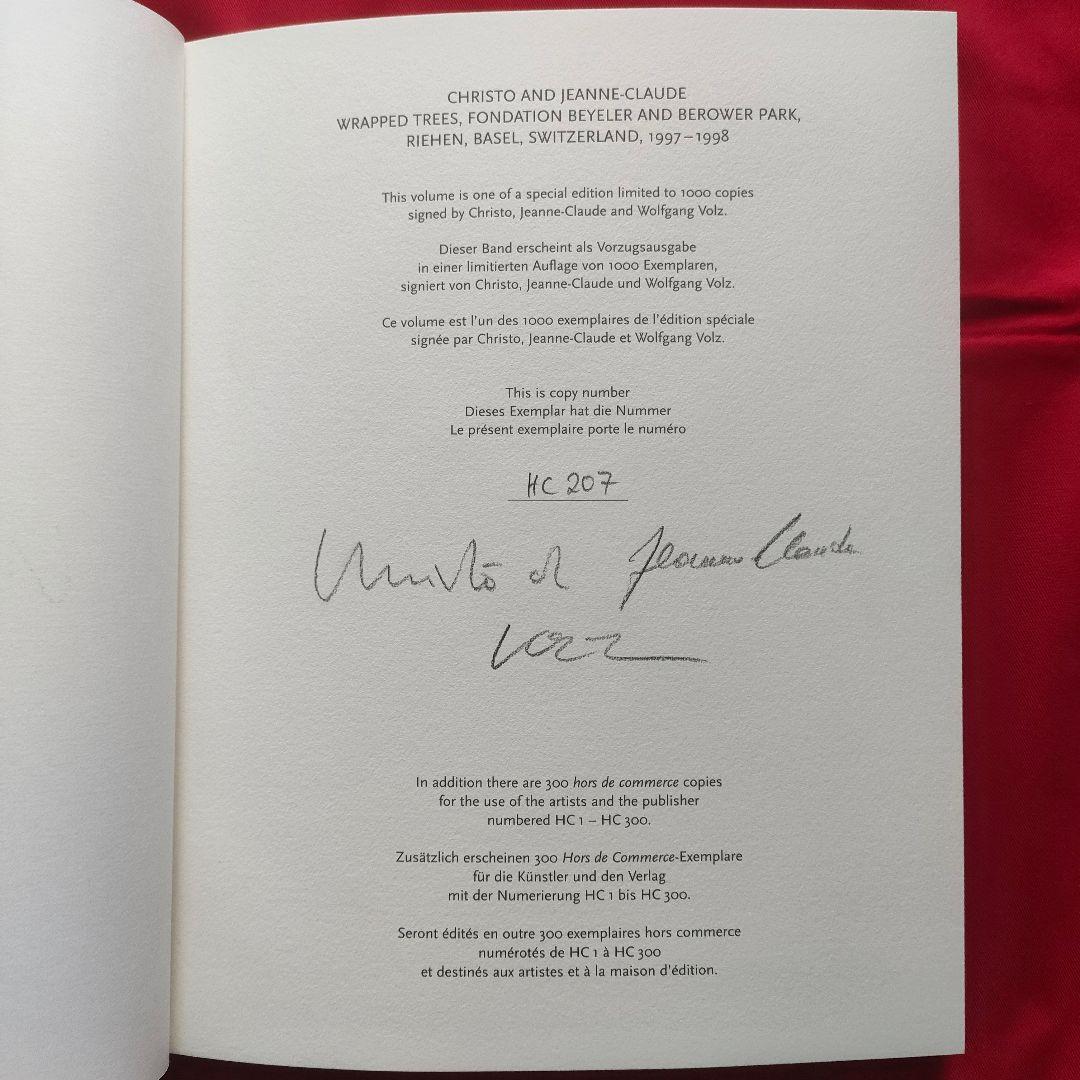 CHRISTO AND JEANNE-CLAUDE
WRAPPED TREES, FONDATION BEYELER AND BEROWER PARK,
RIEHEN, BASEL, SWITZERLAND, 1997–1998
This volume is one of a special edition limited to 1000 copies
signed by Christo, Jeanne-Claude and Wolfgang Volz.
Dieser Band erscheint als Vorzugsausgabe
in einer limitierten Auflage von 1000 Exemplaren,
signiert von Christo, Jeanne-Claude und Wolfgang Volz.
Ce volume est l'un des 1000 exemplaires de l'édition spéciale
signée par Christo, Jeanne-Claude et Wolfgang Volz.
This is copy number
Dieses Exemplar hat die Nummer
Le présent exemplaire porte le numéro
HC 207
Christo et Jeanne Claude
Volz
In addition there are 300 hors de commerce copies
for the use of the artists and the publisher
numbered HC 1 – HC 300.
Zusätzlich erscheinen 300 Hors de Commerce-Exemplare
für die Künstler und den Verlag
mit der Numerierung HC 1 bis HC 300.
Seront édités en outre 300 exemplaires hors commerce
numérotés de HC 1 à HC 300
et destinés aux artistes et à la maison d'édition.